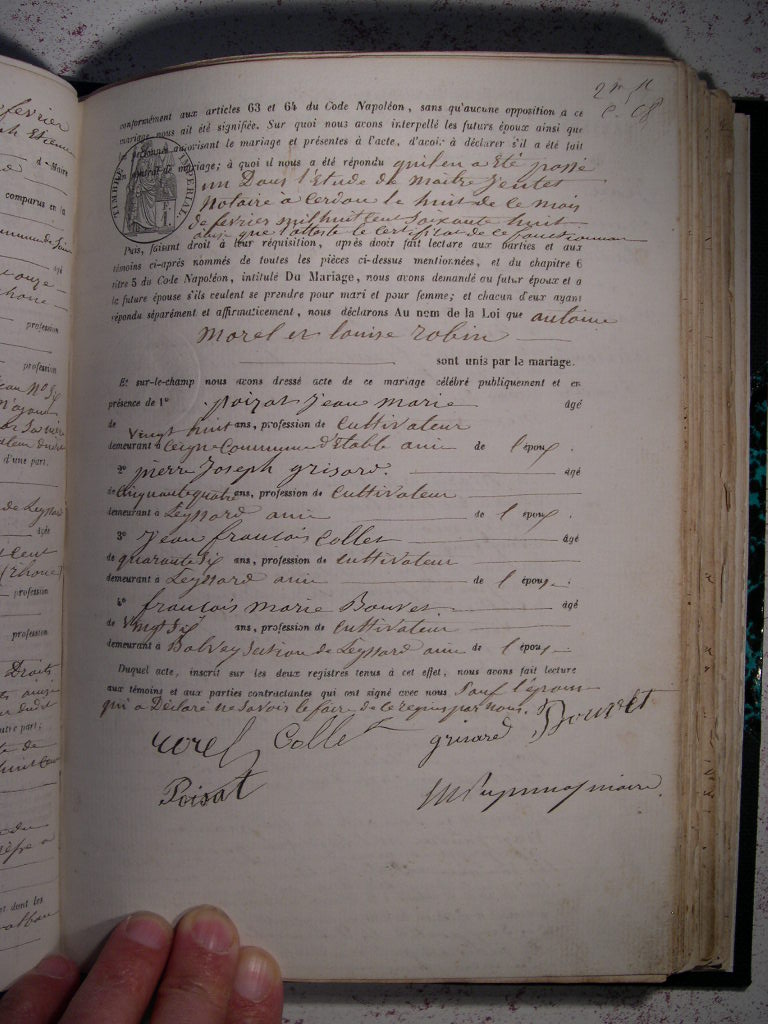 fevrier
d'-Maire
comparus en la
agé
profession
profession
d'une part.
de Leyssard
agée
profession
profession
Droits
autre part;
et dont les
2 n
conformément aux articles 63 et 64 du Code Napoléon, sans qu'aucune opposition a ce
mariage nous ait été signifiée. Sur quoi nous avons interpellé les futurs époux ainsi que
les personnes autorisant le mariage et présentes à l'acte, d'avoir à déclarer s'il a été fait
contrat de mariage; à quoi il nous a été répondu qu'il en a été passé
TIMBRE IMPÉRIAL
un Dans l'Etude de Maitre
Notaire à Cerdon le huit de ce mois
de fevrier mil huit Cent Soixante huit
ainsi que l'atteste le certificat de ce fonctionnaire
Puis, faisant droit à leur réquisition, après avoir fait lecture aux parties et aux
témoins ci-après nommés de toutes les pièces ci-dessus mentionnées, et du chapitre 6
titre 5 du Code Napoléon, intitulé Du Mariage, nous avons demandé au futur époux et a
la future épouse s'ils veulent se prendre pour mari et pour femme; et chacun d'eux ayant
répondu séparément et affirmativement, nous déclarons Au nom de la Loi que antoine
Morel et louise robin
sont unis par le mariage.
Et sur-le-champ nous avons dressé acte de ce mariage célébré publiquement et en
présence de 1° poizat jean marie âgé
de Vingt huit ans, profession de Cultivateur
demeurant à Ceigne Commune d'Etable ami de l'époux.
2° pierre Joseph grisard. âgé
de Cinquante quatre ans, profession de Cultivateur
demeurant à Leyssard ami de l'époux.
3° Jean francois Collet âgé
de quarante Six ans, profession de Cultivateur
demeurant à Leyssard ami de l'épouse.
4° francois Marie Bouvet. âgé
de Vingt Six ans, profession de Cultivateur
demeurant à Balvay Section de Leyssard ami de l'épouse
Duquel acte, inscrit sur les deux registres tenus à cet effet, nous avons fait lecture
aux témoins et aux parties contractantes qui ont signé avec nous Sauf l'épouse
qui a Déclaré ne Savoir le faire de ce requis par nous.
morel Collet grisard Bouvet
Poizat maire